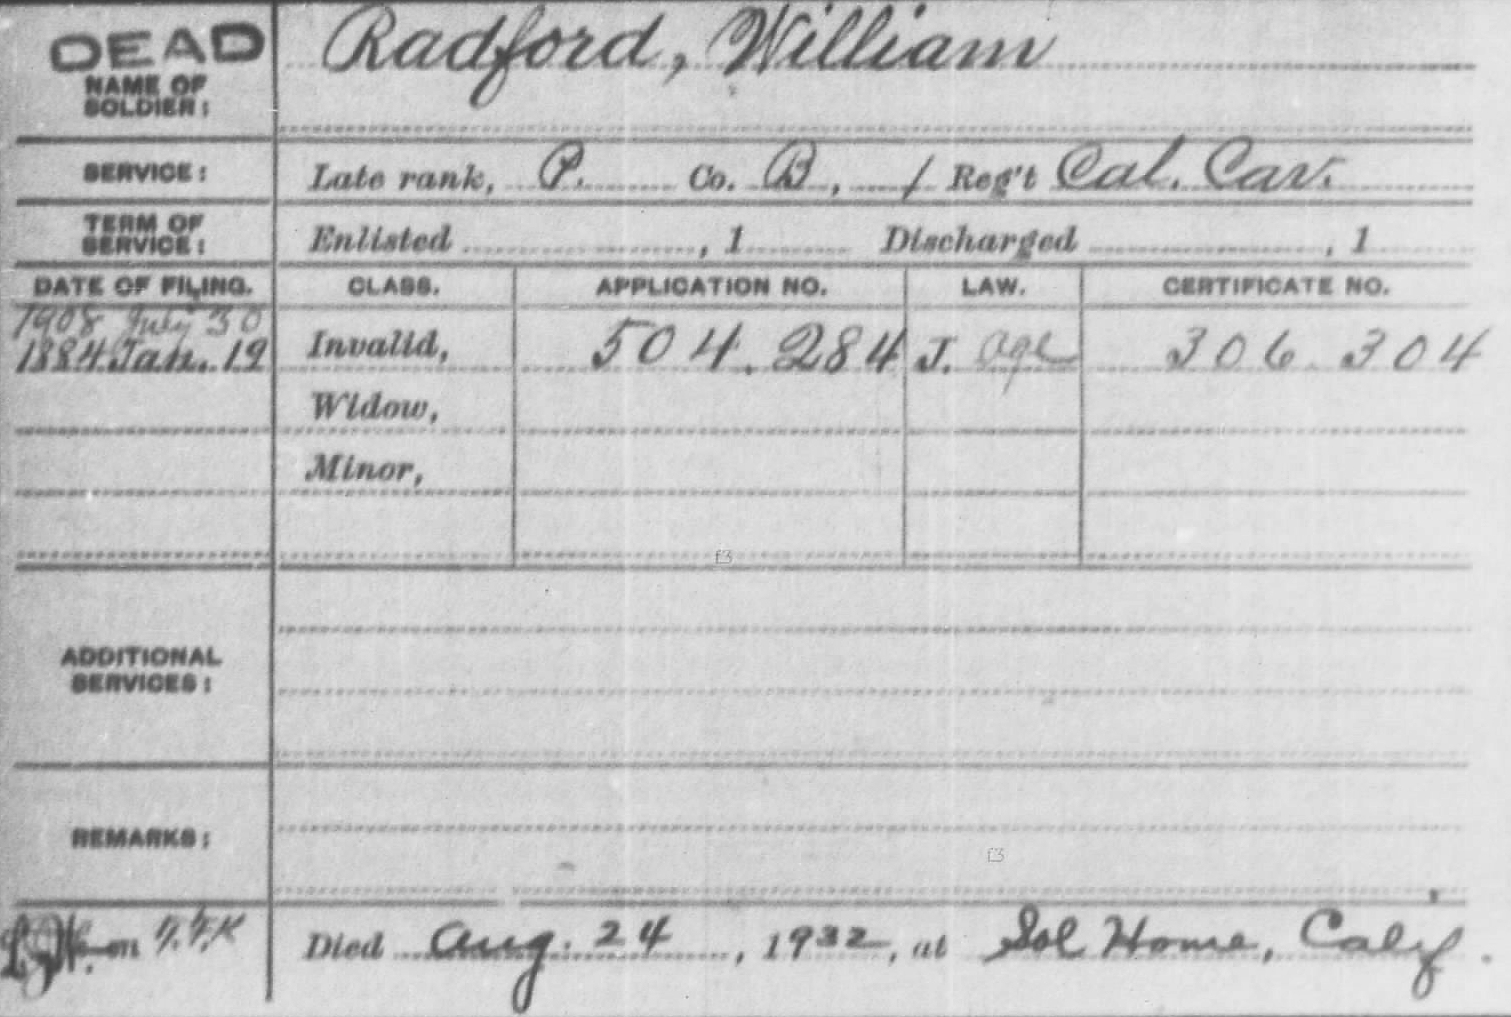 DEAD
NAME OF
SOLDIER:
Radford, William
SERVICE: Late rank, P. Co. B, 1 Reg't Cal. Cav.
TERM OF
SERVICE: Enlisted , 1 Discharged , 1
DATE OF FILING. CLASS. APPLICATION NO. LAW. CERTIFICATE NO.
1908 July 30
1884 Jan. 19 Invalid, 504.284 J. age 306.304
Widow,
Minor,
f3
ADDITIONAL
SERVICES:
REMARKS:
f3
Died Aug. 24, 1932, at Sol Home, Calif.